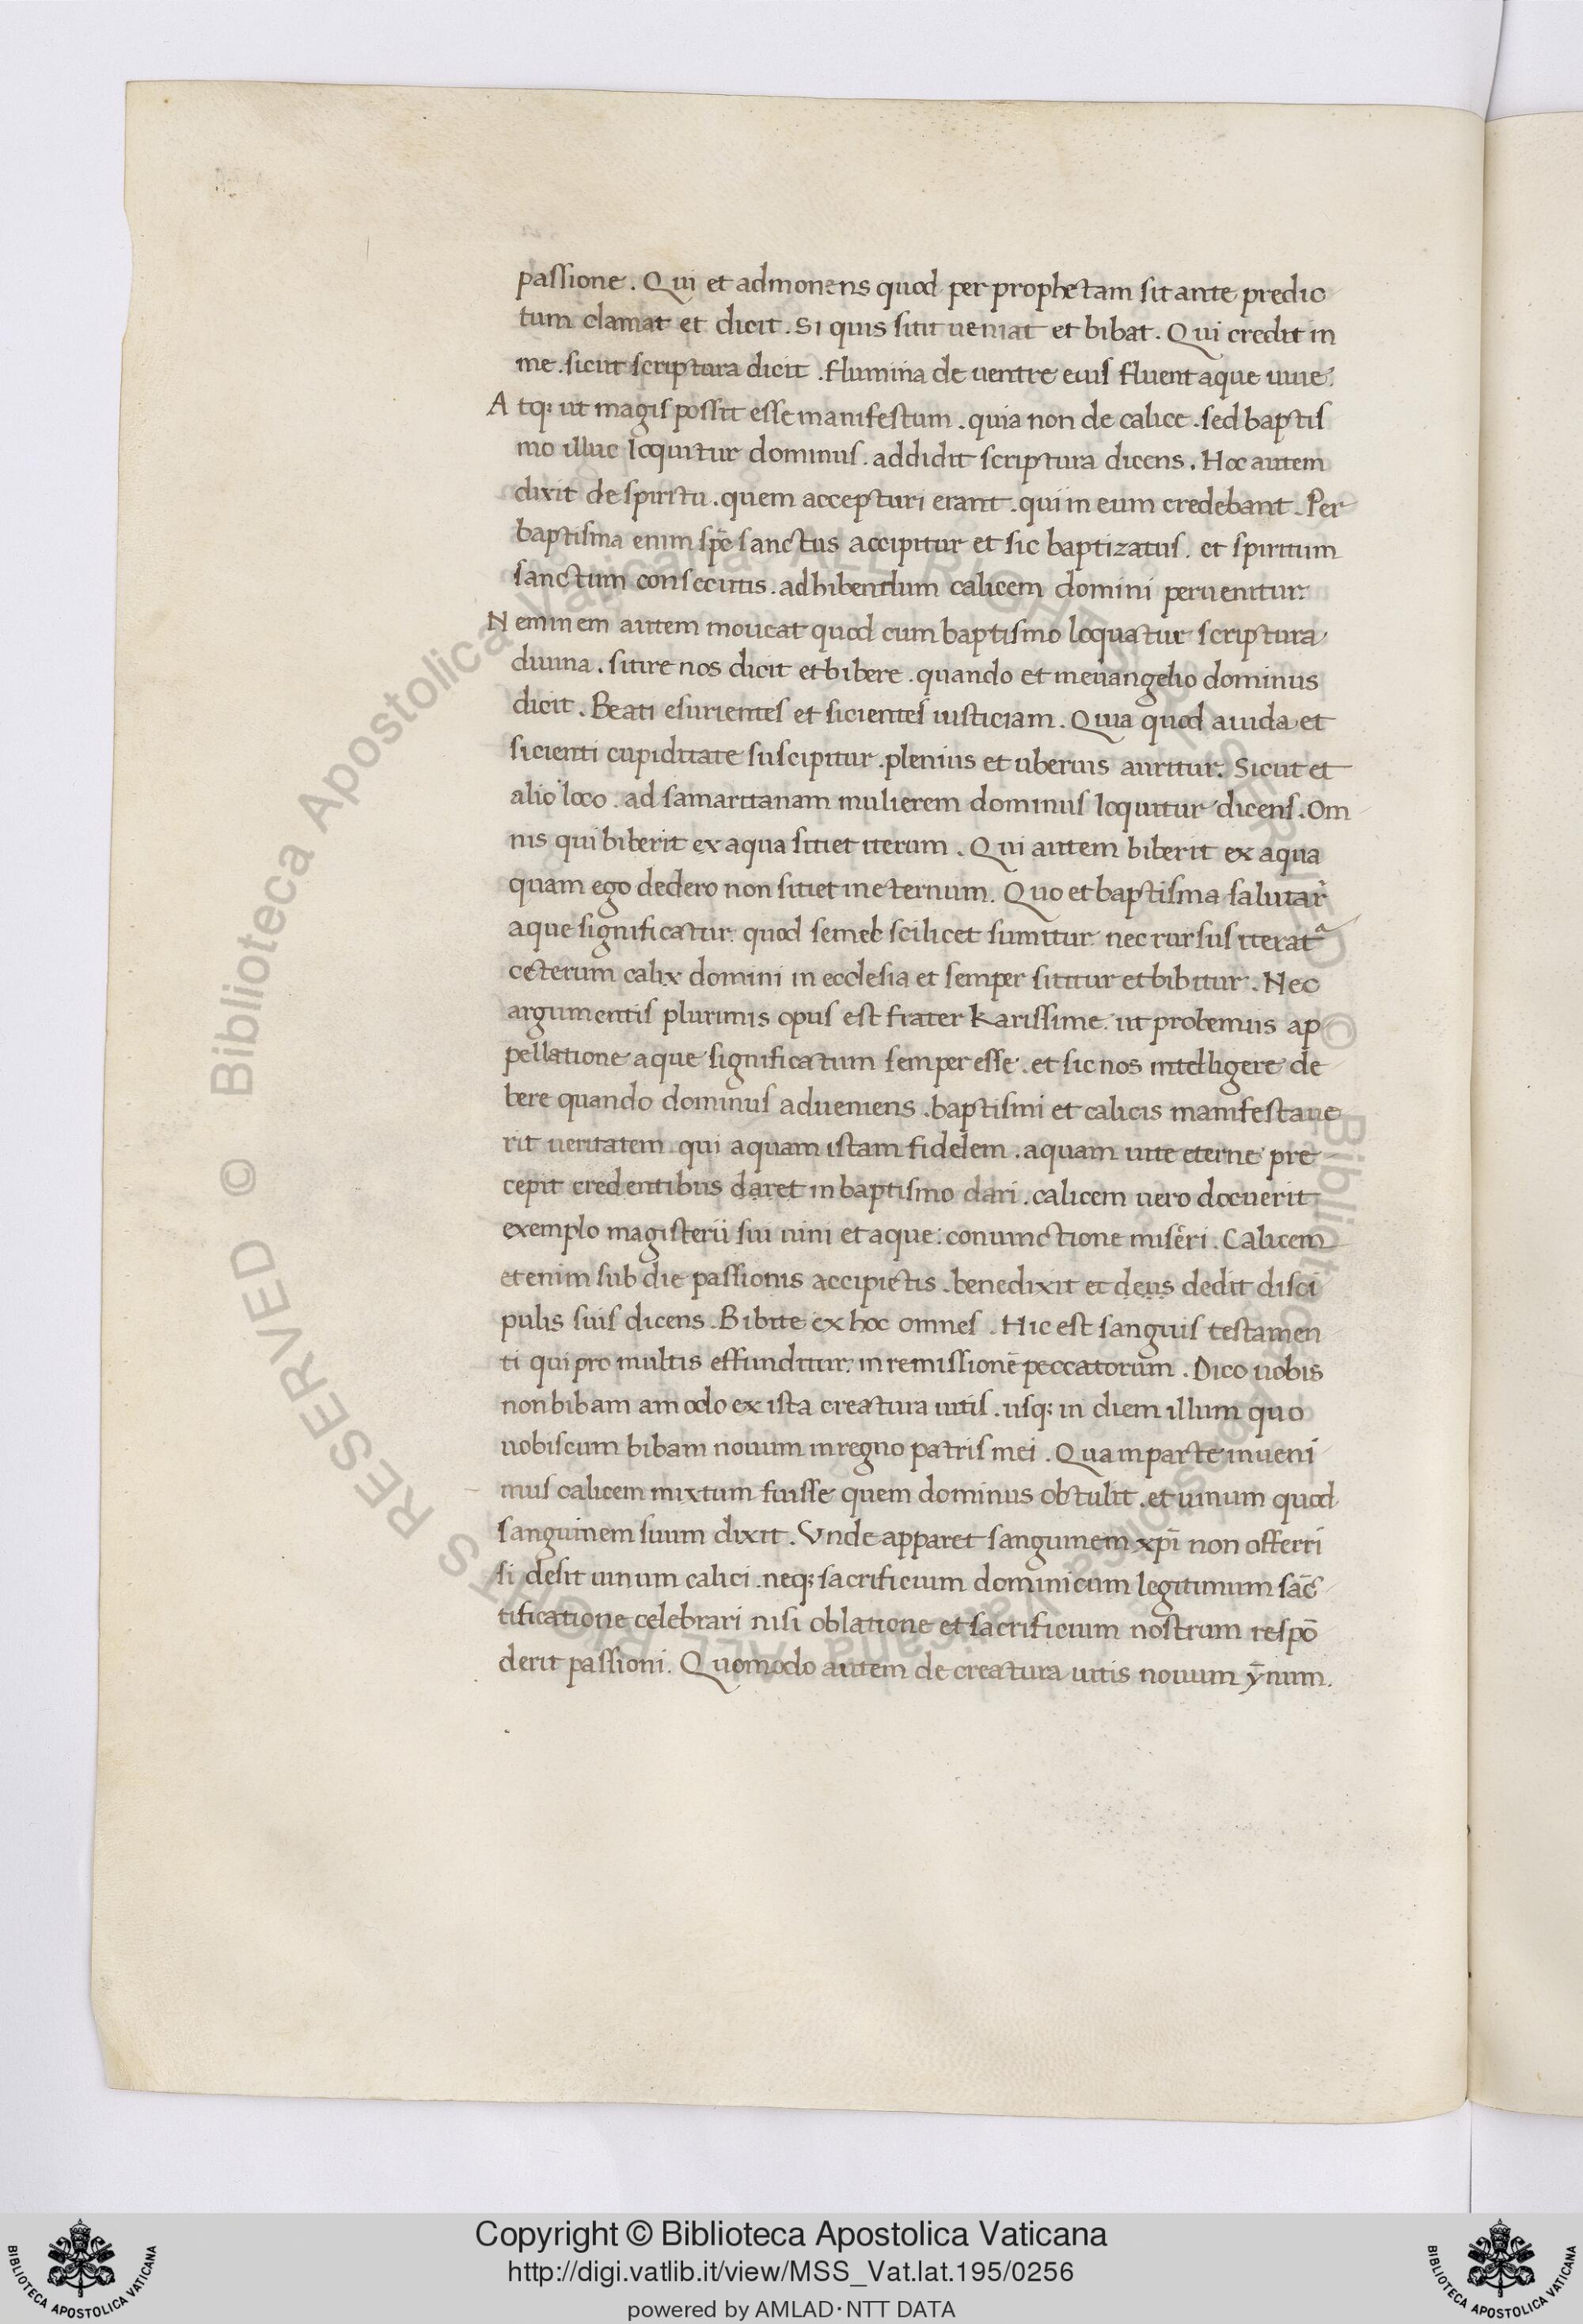 passione. Qui et admonens quod per prophetam sit ante predic
tum clamat et dicit. Si quis sitit ueniat et bibat. Qui credit in
me. sicut scriptura dicit. flumina de uentre eius fluent aque uiue.
Atq; ut magis possit esse manifestum. quia non de calice. sed baptis
mo illuc loquitur dominus. addidit scriptura dicens. Hoc autem
dixit de spiritu. quem accepturi erant. qui in eum credebant. Per
baptisma enim spc̄ sanctus accipitur et sic baptizatus. et spiritum
sanctum consecutis. ad bibendum calicem domini peruenitur.
Neminem autem moueat quod cum baptismo loquatur scriptura
diuina. sitire nos dicit et bibere. quando et in euangelio dominus
dicit. Beati esurientes et sicientes iusticiam. Quia quod auida et
sicienti cupiditate suscipitur. plenius et uberius auritur. Sicut et
alio loco. ad samaritanam mulierem dominus loquitur dicens. Om
nis qui biberit ex aqua sitiet iterum. Qui autem biberit ex aqua
quam ego dedero non sitiet in eternum. Quo et baptisma salutar̄
aque significatur. quod semel scilicet sumitur. nec rursus iterat᷑
ceterum calix domini in ecclesia et semper sititur et bibitur. Nec
argumentis plurimis opus est frater karissime. ut probemus ap
pellatione aque significatum semper esse. et sic nos intelligere de
bere quando dominus adueniens. baptismi et calicis manifestaue
rit ueritatem. qui aquam istam fidelem. aquam uite eterne pre
cepit credentibus daret in baptismo dari. calicem uero docuerit
exemplo magisterii sui uini et aque. coniunctione misc̄ri. Calicem
etenim sub die passionis accipietis. benedixit et deus dedit disci
pulis suis dicens. Bibite ex hoc omnes. Hic est sanguis testamen
ti qui pro multis effunditur. in remissionē peccatorum. Dico uobis
non bibam amodo ex ista creatura uitis. usq; in diem illum quo
uobiscum bibam nouum in regno patris mei. Qua in parte inueni
mus calicem mixtum fuisse quem dominus obtulit. et uinum quod
sanguinem suum dixit. Vnde apparet sanguinem xp̄i non offerri
si desit uinum calici. neq; sacrificium dominicum legitimum sāc
tificatione celebrari nisi oblatione et sacrificium nostrum respō
derit passioni. Quomodo autem de creatura uitis nouum ẏnum.
Copyright © Biblioteca Apostolica Vaticana
http://digi.vatlib.it/view/MSS_Vat.lat.195/0256
powered by AMLAD·NTT DATA
BIBLIOTECA APOSTOLICA VATICANA
BIBLIOTECA APOSTOLICA VATICANA
© Biblioteca Apostolica Vaticana ALL RIGHTS RESERVED © Biblioteca Apostolica Vaticana ALL RIGHTS RESERVED